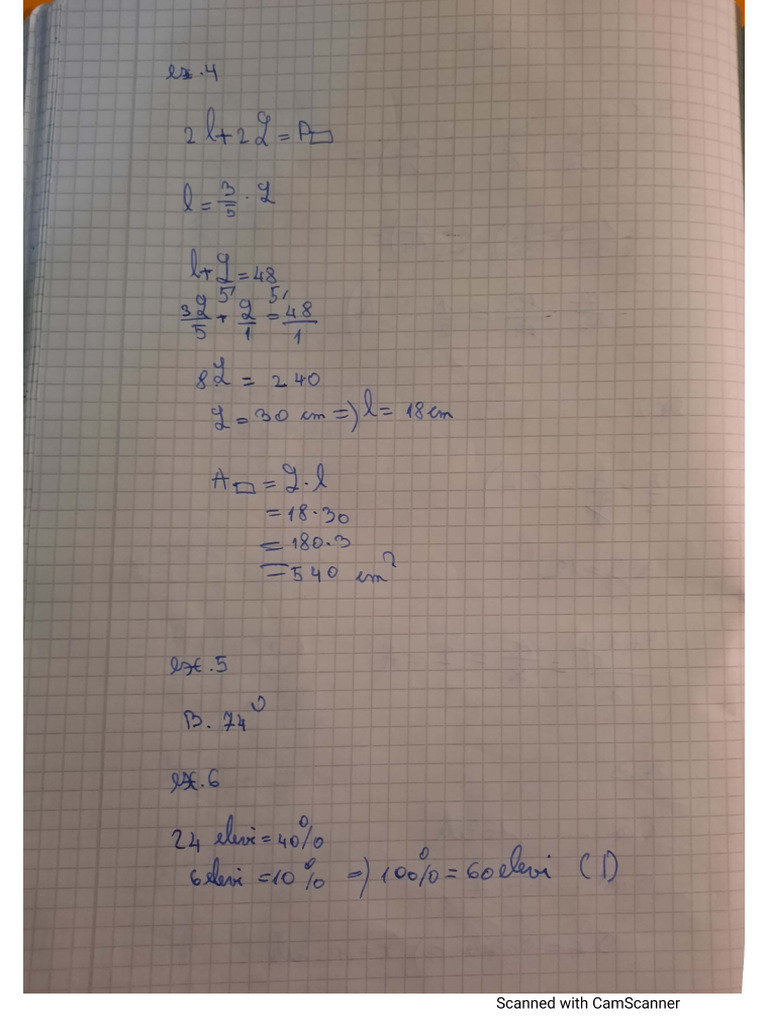 ex.4
2l+2L=P▭
l=3/5·L
l+L=48
3L/5+L/1=48/1
8L=240
L=30 cm=)l=18cm
A▭=L·l
=18·30
=180·3
=540 cm²
ex.5
B. 74°
ex.6
24 elevi=40%
6elevi=10% =)100%=60elevi (D)
Scanned with CamScanner